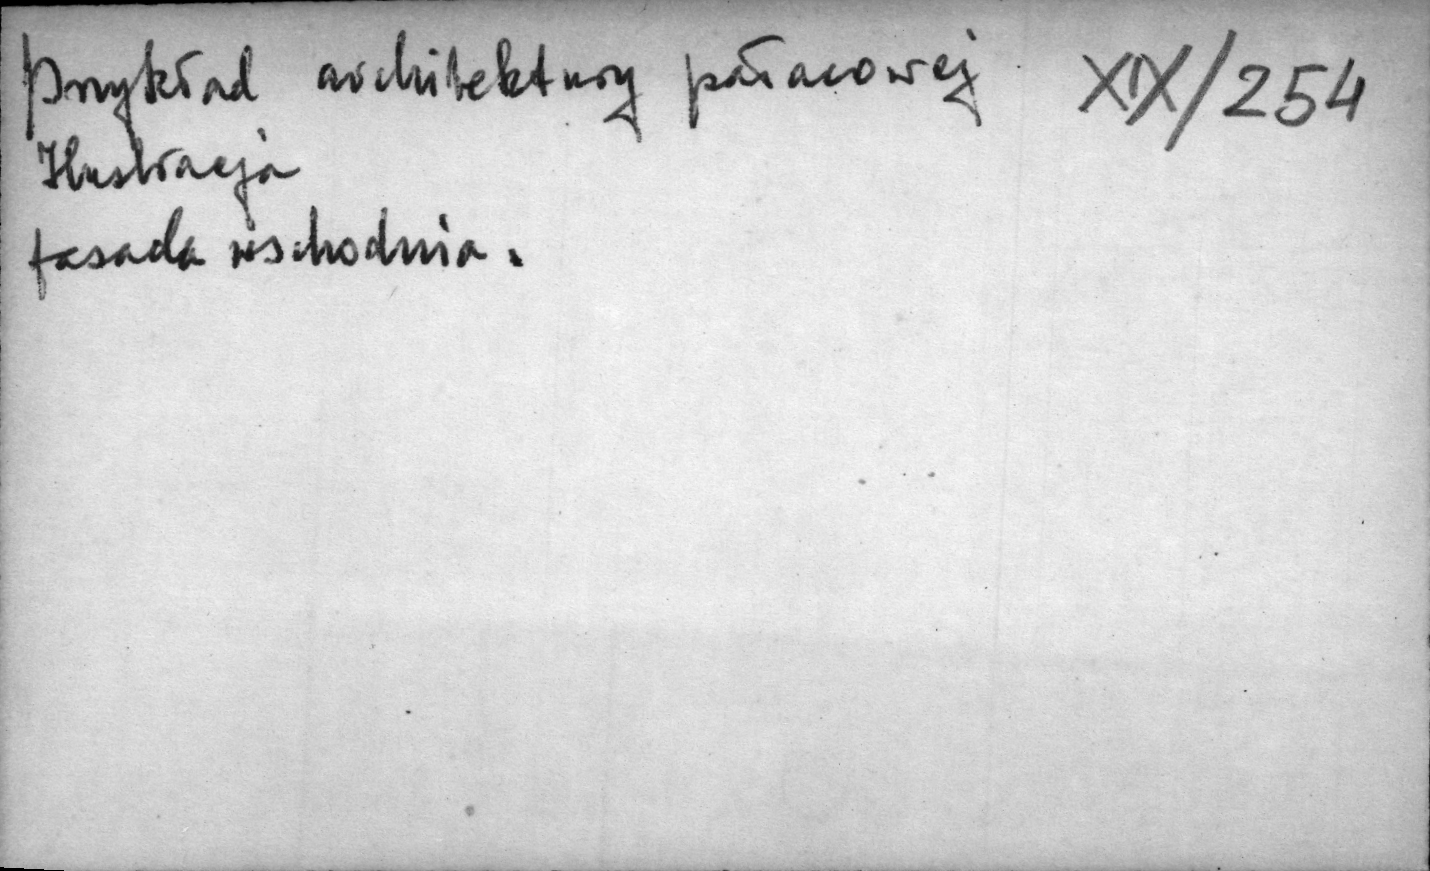 Przykład architektury pałacowej XIX/254
Ilustracja
fasada wschodnia.